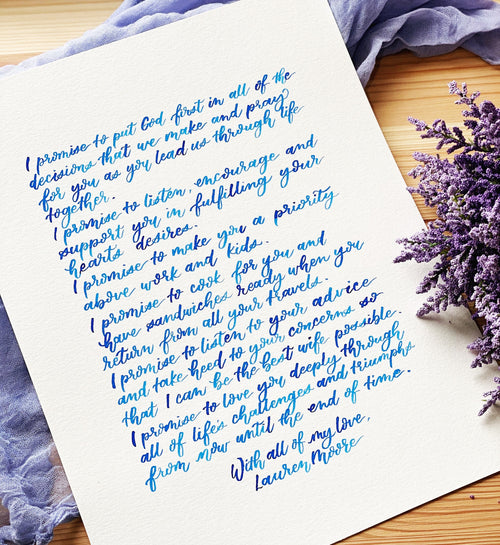 I promise to put God first in all of the
decisions that we make and pray
for you as you lead us through life
together.
I promise to listen, encourage and
support you in fulfilling your
hearts desires.
I promise to make you a priority
above work and kids.
I promise to cook for you and
have sandwiches ready when you
return from all your travels.
I promise to listen to your advice
and take heed to your concerns so
that I can be the best wife possible.
I promise to love you deeply through
all of life's challenges and triumphs
from now until the end of time.
With all of my love,
Lauren Moore